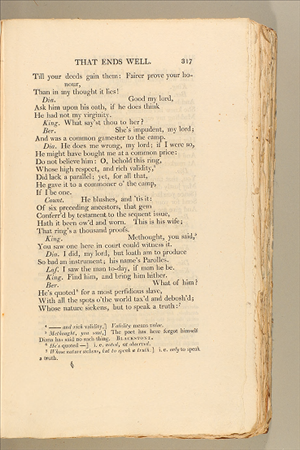 THAT ENDS WELL. 317
Till your deeds gain them: Fairer prove your ho-
nour,
Than in my thought it lies!
Dia. Good my lord,
Ask him upon his oath, if he does think
He had not my virginity.
King. What say'st thou to her?
Ber. She's impudent, my lord;
And was a common gamester to the camp.
Dia. He does me wrong, my lord; if I were so,
He might have bought me at a common price:
Do not believe him: O, behold this ring,
Whose high respect, and rich validity,
Did lack a parallel; yet, for all that,
He gave it to a commoner o' the camp,
If I be one.
Count. He blushes, and 'tis it:
Of six preceding ancestors, that gem
Conferr'd by testament to the sequent issue,
Hath it been ow'd and worn. This is his wife;
That ring's a thousand proofs.
King. Methought, you said,
You saw one here in court could witness it.
Dia. I did, my lord, but loath am to produce
So bad an instrument; his name's Parolles.
Laf. I saw the man to-day, if man he be.
King. Find him, and bring him hither.
Ber. What of him?
He's quoted for a most perfidious slave,
With all the spots o'the world tax'd and debosh'd;
Whose nature sickens, but to speak a truth:
—— and rich validity,] Validity means value.
Methought, you said,] The poet has here forgot himself
Diana has said no such thing. BLACKSTONE.
He's quoted —] i. e. noted, or observed.
Whose nature sickens, but to speak a truth:] i. e. only to speak
a truth.